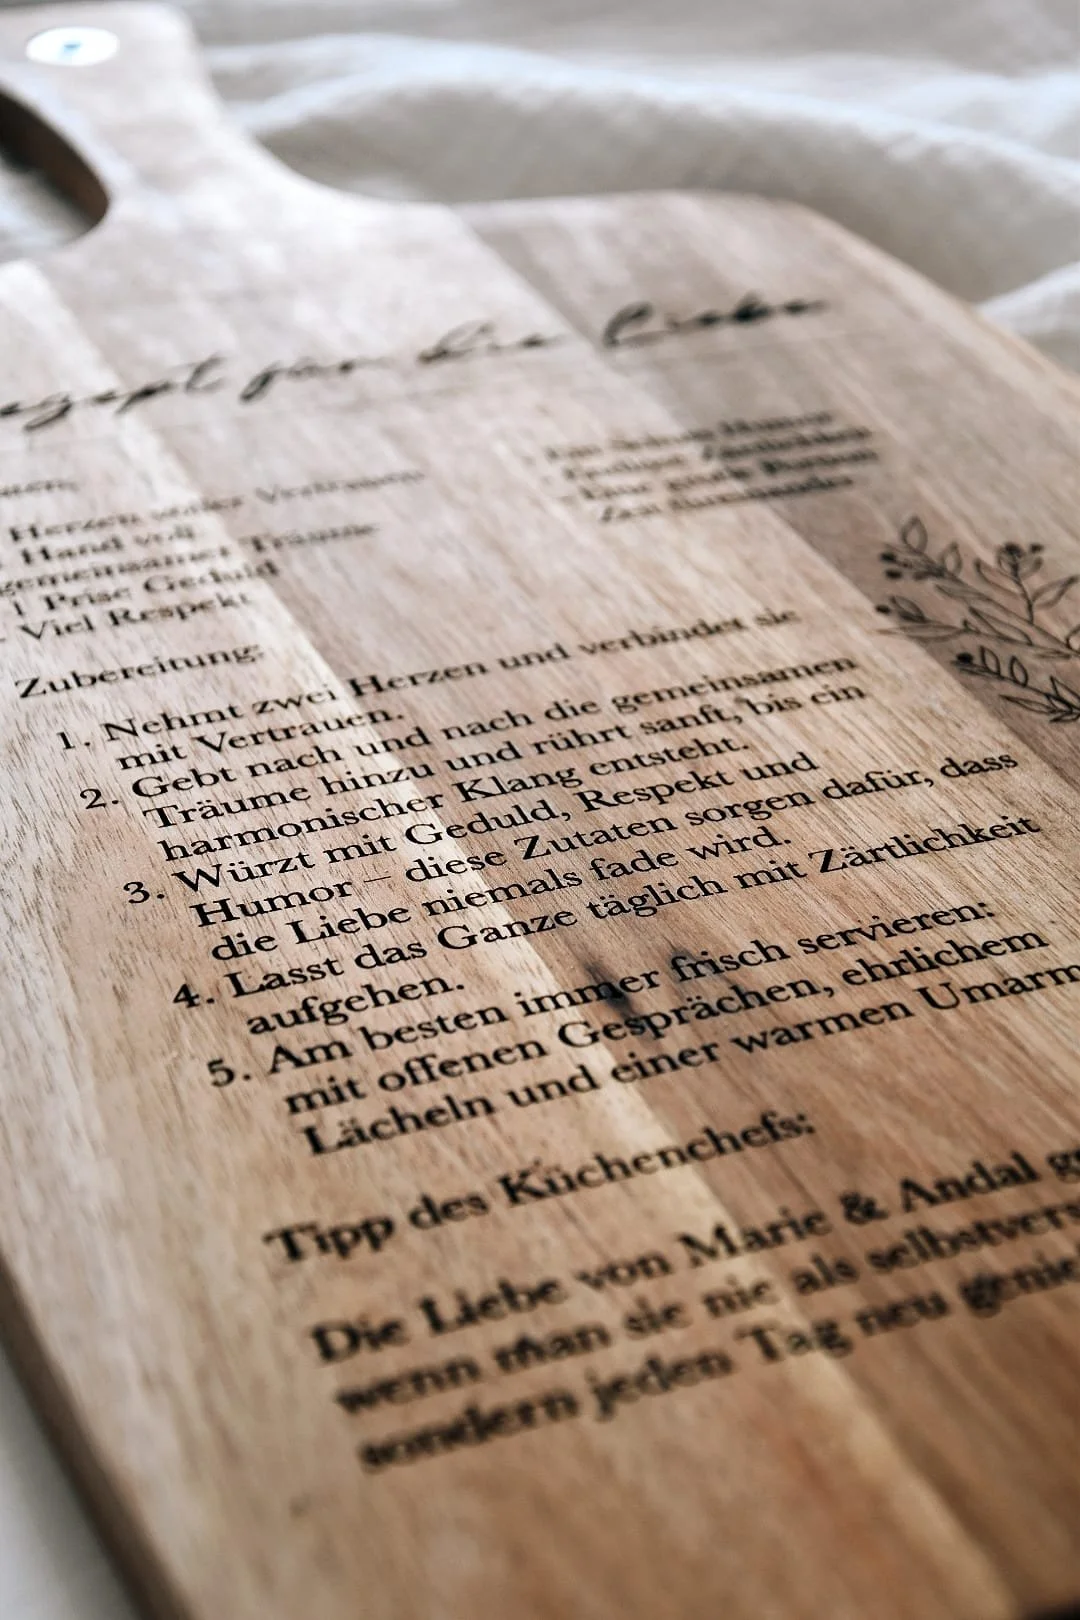 für die Liebe
Herzen voller Vertrauen
Hand voll
gemeinsamer Träume
1 Prise Geduld
- Viel Respekt
Zubereitung:
1. Nehmt zwei Herzen und verbindet sie
mit Vertrauen.
2. Gebt nach und nach die gemeinsamen
Träume hinzu und rührt sanft, bis ein
harmonischer Klang entsteht.
3. Würzt mit Geduld, Respekt und
Humor – diese Zutaten sorgen dafür, dass
die Liebe niemals fade wird.
4. Lasst das Ganze täglich mit Zärtlichkeit
aufgehen.
5. Am besten immer frisch servieren:
mit offenen Gesprächen, ehrlichem
Lächeln und einer warmen Umarm
Tipp des Küchenchefs:
Die Liebe von Marie & Andal
wenn man sie nie als selbstvers
sondern jeden Tag neu genie